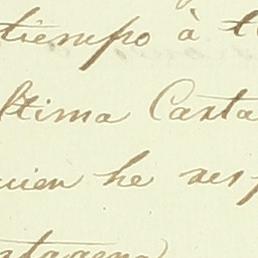 tiempo à t
ltima Carta
uien he res
ntagena